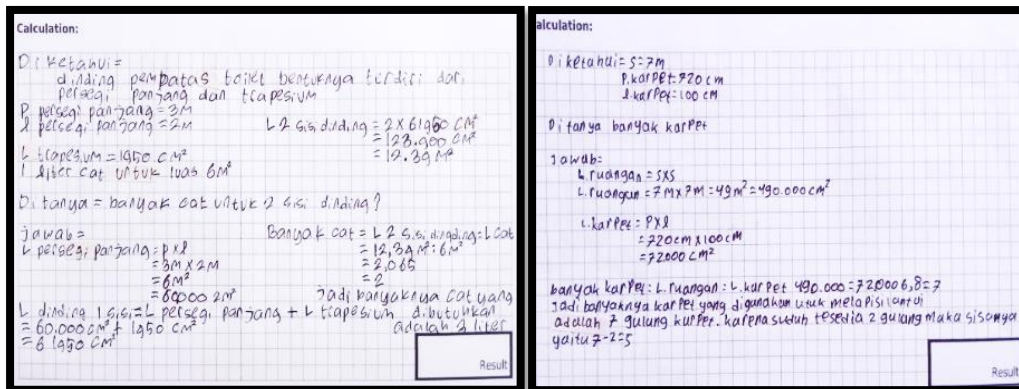 Calculation:
Diketahui=
dinding pembatas toilet bentuknya terdiri dari
persegi panjang dan trapesium
P persegi panjang = 3M
l persegi panjang = 2M
L trapesium = 1950 cm²
1 liter cat untuk luas 6M²
Ditanya = banyak cat untuk 2 sisi dinding?
jawab=
L persegi panjang = p x l
= 3M x 2M
= 6M²
= 60000 2M²
L dinding 1 sisi = L persegi panjang + L trapesium
= 60.000 cm² + 1950 cm²
= 61950 cm²
L 2 sisi dinding = 2 x 61950 CM²
= 123.900 CM²
= 12.39 M²
Banyak cat = L 2 sisi dinding : L cat
= 12,39 M² : 6M²
= 2,065
= 2
Jadi banyaknya cat yang
dibutuhkan
adalah 2 liter
Result
alculation:
Diketahui = s = 7m
P.karpet = 720 cm
l.karpet = 100 cm
Ditanya banyak karpet
Jawab=
L.ruangan = s x s
L.ruangan = 7 M x 7 M = 49 m² = 490.000 cm²
L.karpet = P x l
= 720 cm x 100 cm
= 72000 cm²
banyak karpet = L.ruangan : L.karpet 490.000 = 72000 6,8 = 7
Jadi banyaknya karpet yang digunakan utuk melapisi lantai
adalah 7 gulung karpet. karena sudah tesedia 2 gulang maka sisanya
yaitu 7-2=5
Result